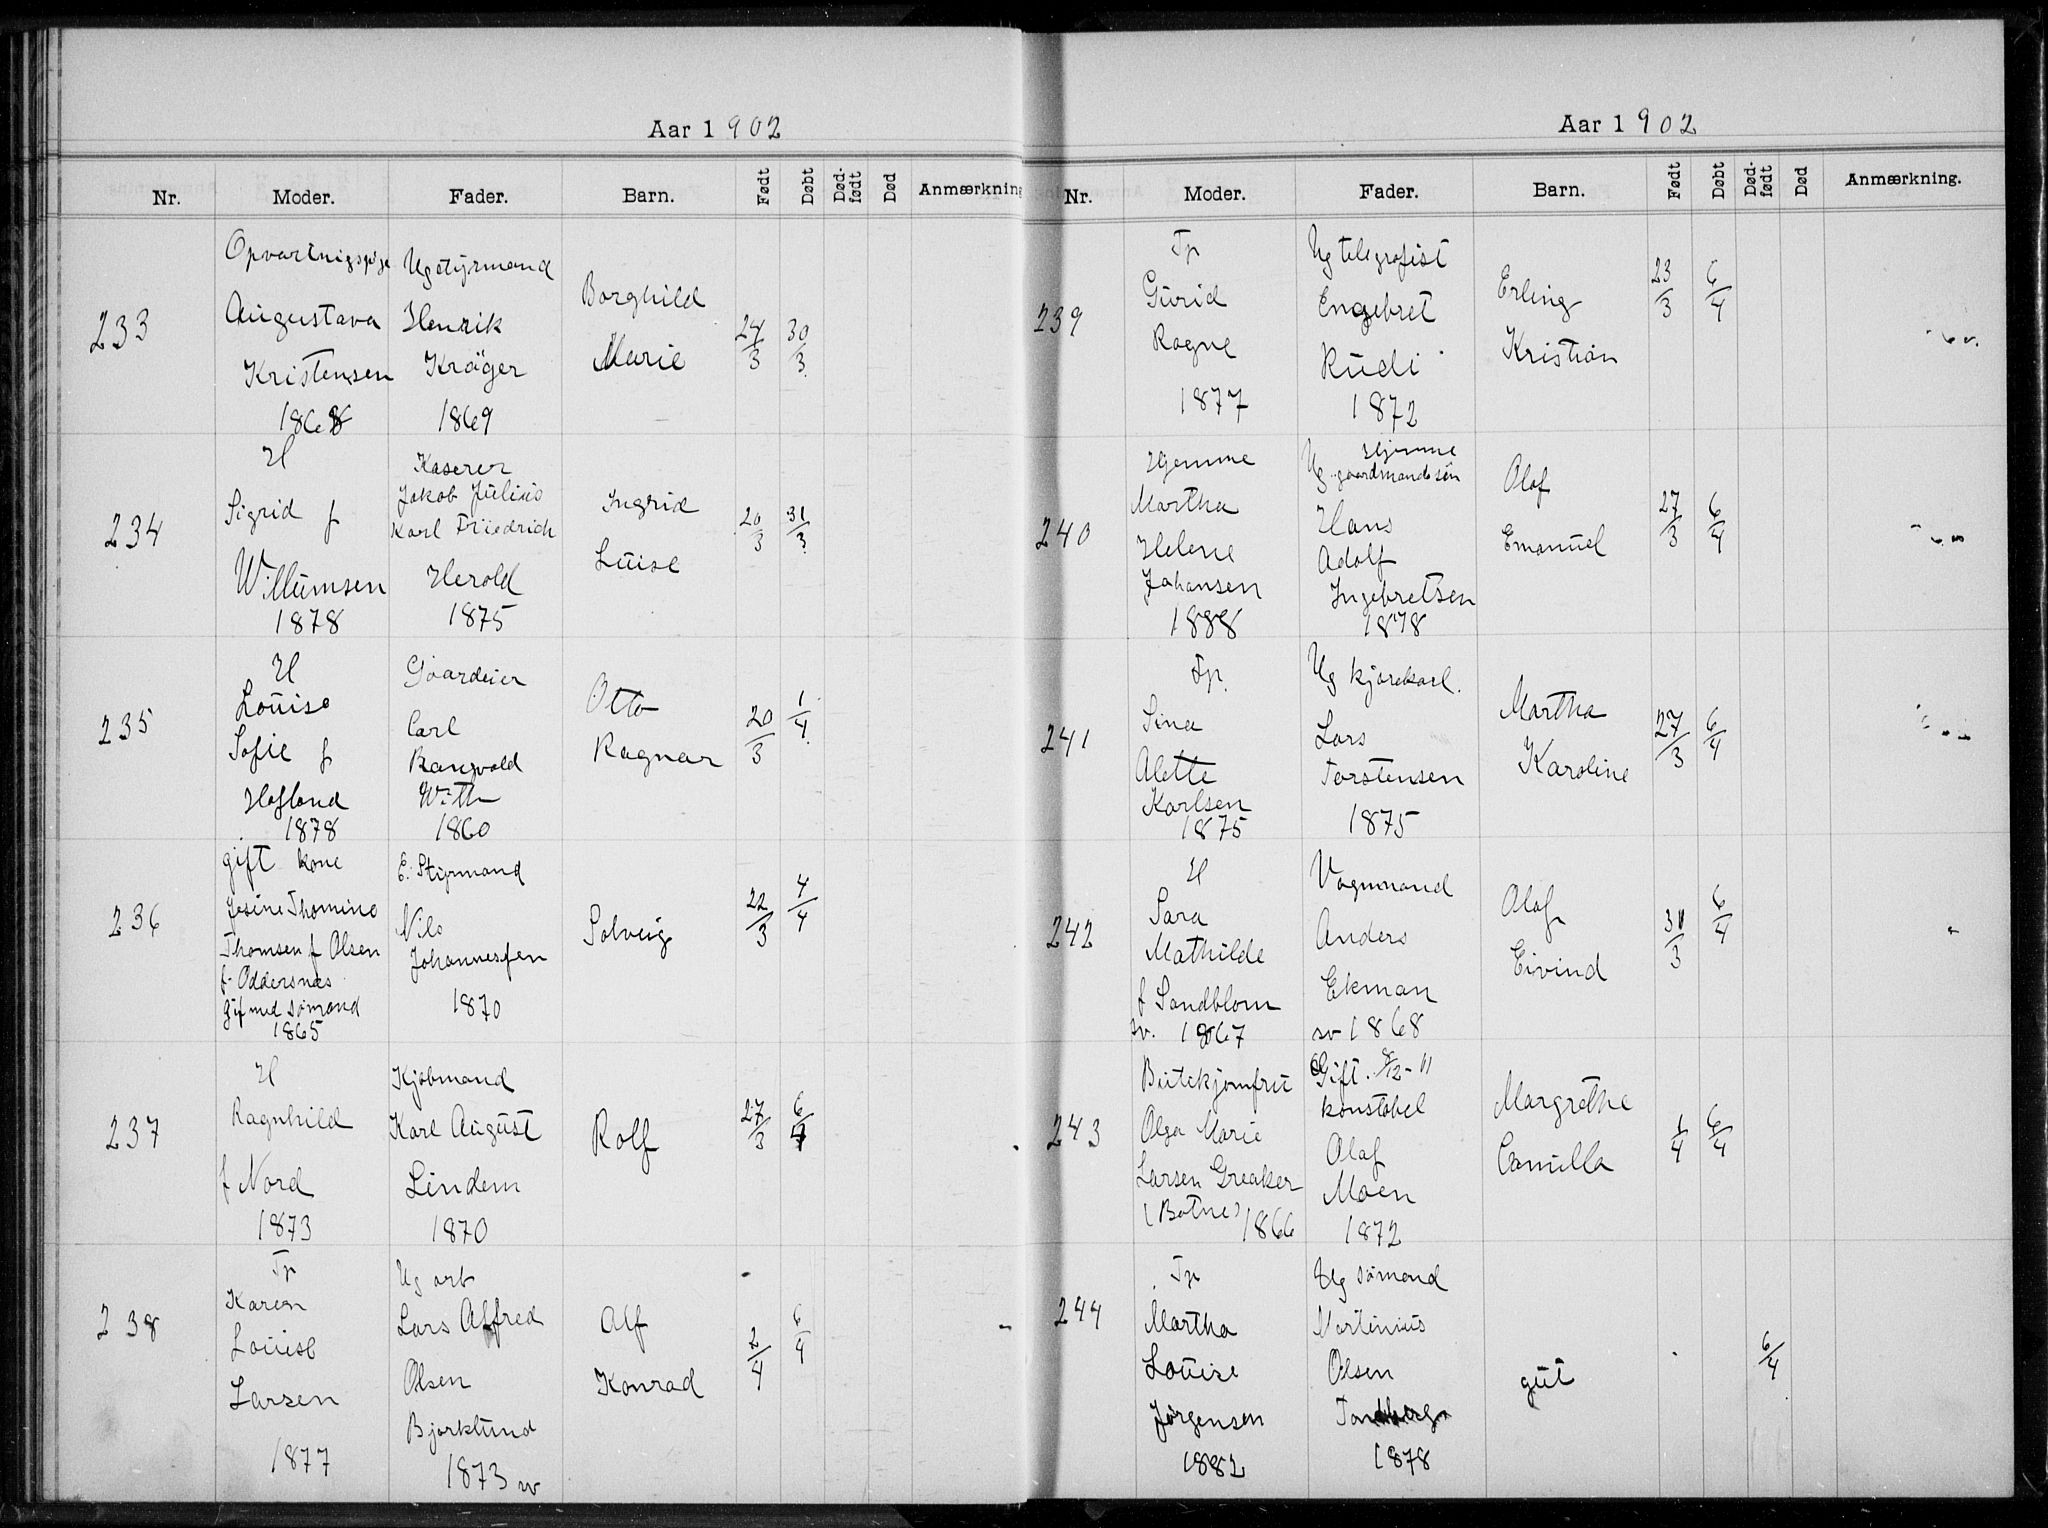 Aar 1902
Nr. Moder. Fader. Barn. Født Døbt Død-født Død Anmærkning
233
Opvartningspige
Augustava
Kristensen
1868
Ug styrmand
Henrik
Kröger
1869
Borghild
Marie
24/3 30/3
234
H
Sigrid f
Willumsen
1878
Kaserer
Jakob Julius
Karl Friedrich
Herold
1875
Ingrid
Luise
20/3 31/3
235
H
Louise
Sofie f
Hofland
1878
Gaardeier
Carl
Rangvald
With
1860
Otto
Ragnar
20/3 1/4
236
gift kone
Jesine Thomine
Thomsen f Olsen
f. Oddersnæs
Gif med sömand
1865
E. Styrmand
Nils
Johannesen
1870
Solveig
22/3 4/4
237
H
Ragnhild
f Nord
1873
Kjöbmand
Karl August
Lindem
1870
Rolf
27/3 6/4
238
Tp
Karen
Louise
Larsen
1877
Ug arb
Lars Alfred
Olsen
Bjorklund
1873 sv
Alf
Konrad
2/4 6/4
Aar 1902
Nr. Moder. Fader. Barn. Født Døbt Død-født Død Anmærkning.
239
Tp
Gurid
Rogne
1877
Ug telegrafist
Engebret
Rudi
1872
Erling
Kristian
23/3 6/4
240
Hjemme
Martha
Helene
Johansen
1888
Hjemme
Ug. gaardmandssön
Hans
Adolf
Ingebretsen
1878
Olaf
Emanuel
27/3 6/4
241
Tp.
Sina
Alette
Karlsen
1875
Ug kjörekarl.
Lars
Torstensen
1875
Martha
Karoline
27/3 6/4
242
H
Sara
Mathilde
f Sandblom
sv. 1867
Vognmand
Anders
Ekman
sv 1868
Olaf
Eivind
31/3 6/4
243
Butekjomfru
Olga Marie
Larsen Greaker
(Botne) 1866
Gift. 8/12-11
konstabel
Olaf
Moen
1872
Margrethe
Camilla
1/4 6/4
244
Tp
Martha
Louise
Jørgensen
1882
Ug sömand
Martinius
Olsen
1878
gut
6/4